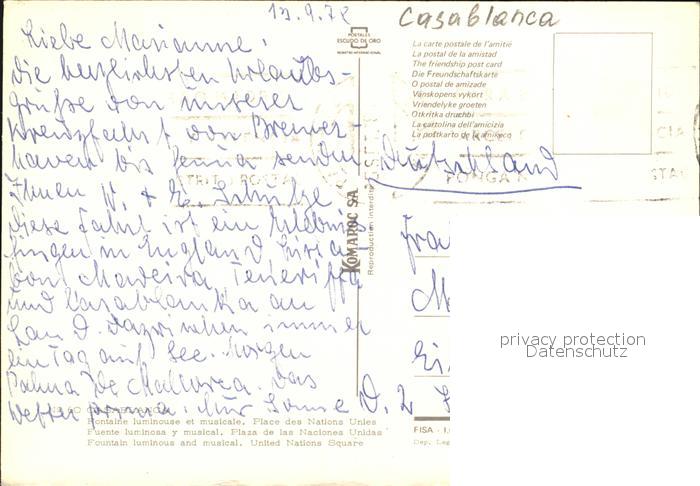 13.9.72
Casablanca
Liebe Marianne!
die herzlichsten Urlaubs-
grüße von unserer
Kreuzfahrt von Bremer-
haven bis Genua senden
Ihnen W. + E. Schulze
diese Fahrt ist ein Erlebnis
gingen in England, Lissa-
bon, Madeira, Teneriffa
und Casablanka an
Lan d. dazwischen immer
ein Tag auf See. Morgen
Palma de Mallorca. das
Wetter prima. Nur Sonne
POSTALES
ESCUDO DE ORO
La carte postale de l'amitié
La postal de la amistad
The friendship post card
Die Freundschaftskarte
O postal de amizade
Vänskopens vykort
Vriendelyke groeten
Otkritka druchbi
La cartolina dell'amicizia
La postkarto de la amikeco
Deutschland
KOMAROC SA
Reproduction interdite
Frau
D. 2
privacy protection
Datenschutz
CASABLANCA
Fontaine luminouse et musicale. Place des Nations Unies
Fuente luminosa y musical. Plaza de las Naciones Unidas
Fountain luminous and musical. United Nations Square
FISA - I.
Dep. Leg